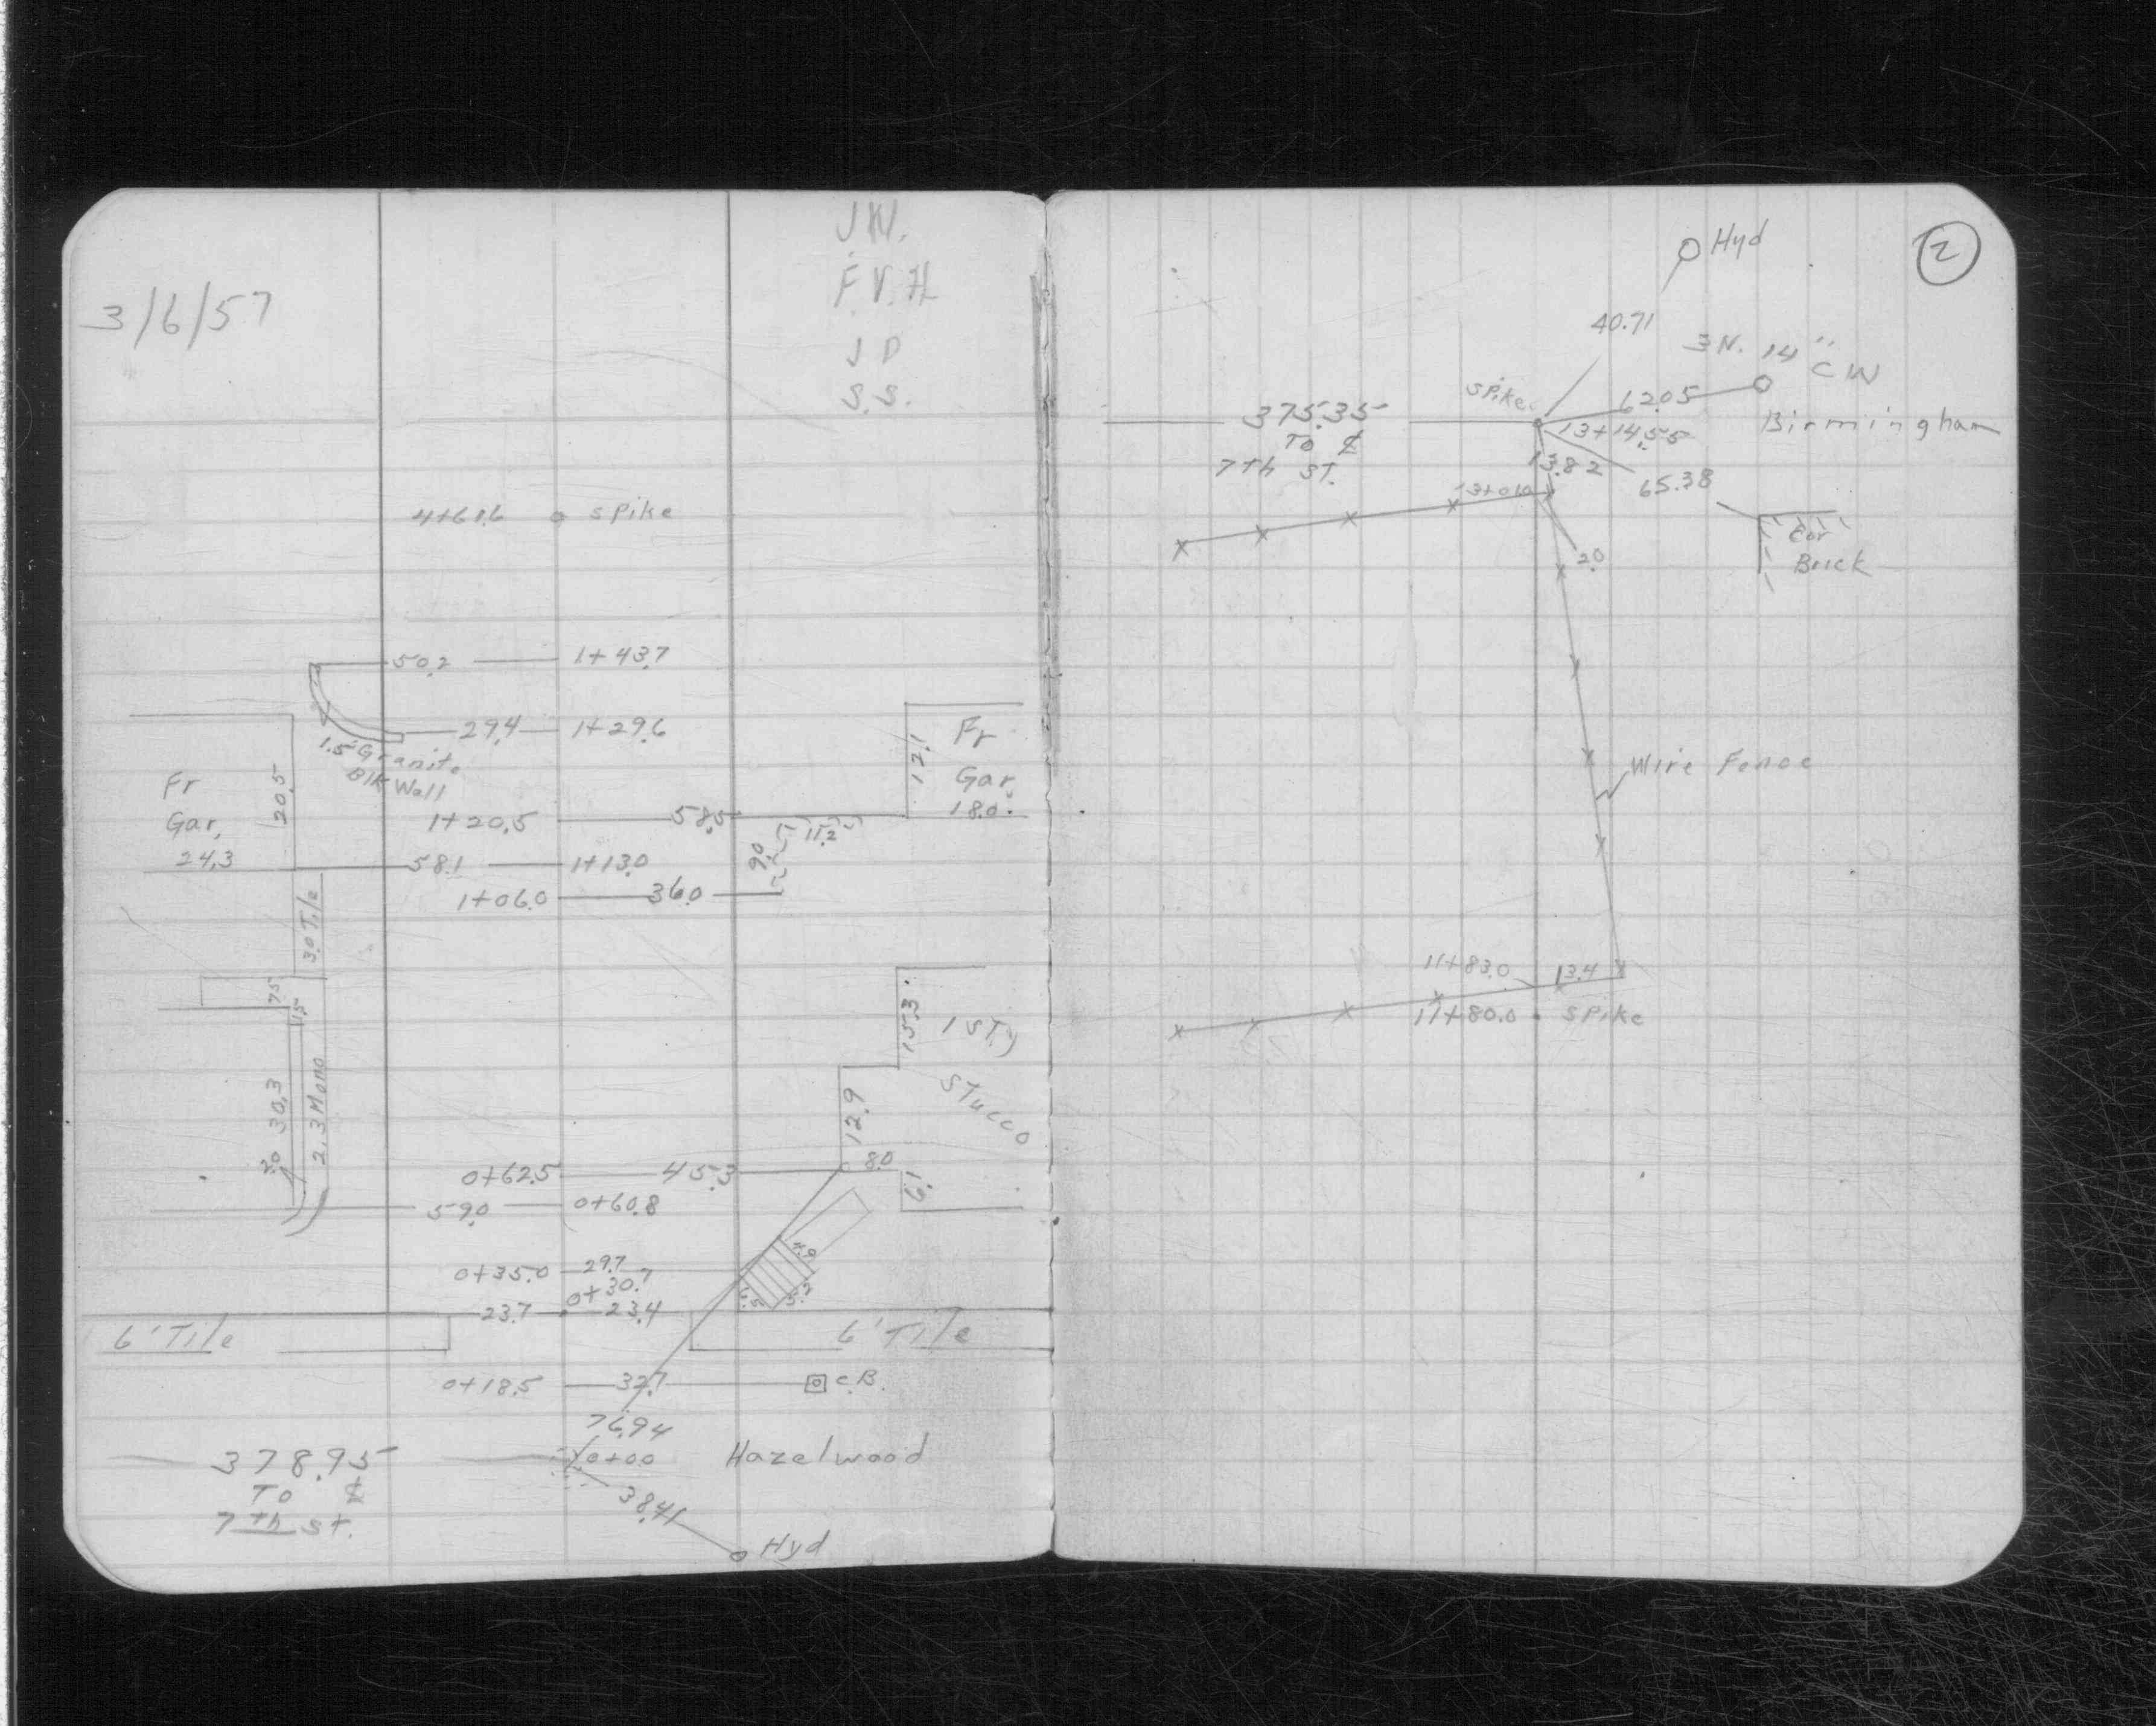 3/6/57
J.W.
F.V.H.
J D
S.S.
4+61.6 spike
50.2 1+43.7
29.4 1+29.6
1.5' Granite
Blk Wall
Fr
Gar.
24.3
20.5
Fr
Gar.
18.0
12.1
1+20.5 58.5
11.2
9.0
58.1 1+13.0
1+06.0 36.0
3.0 Tile
7.5
1.5
30.3
2.3 Mono
2.0
15.3
1 ST.
Stucco
12.9
8.0
6.1
0+62.5 45.3
59.0 0+60.8
0+35.0 29.7
0+30.7
23.7 23.4
4.0
5.2
6' Tile
6' Tile
0+18.5 32.7 C.B.
76.94
0+00 Hazelwood
378.95
To ℄
7th St.
38.41
Hyd
2
Hyd
40.71
3N. 14" CW
spike
62.05
Birmingham
375.35
To ℄
7th ST.
13+14.55
13.82
65.38
13+01.0
2.0
Cor
Brick
Wire Fence
11+83.0 13.4
11+80.0 spike